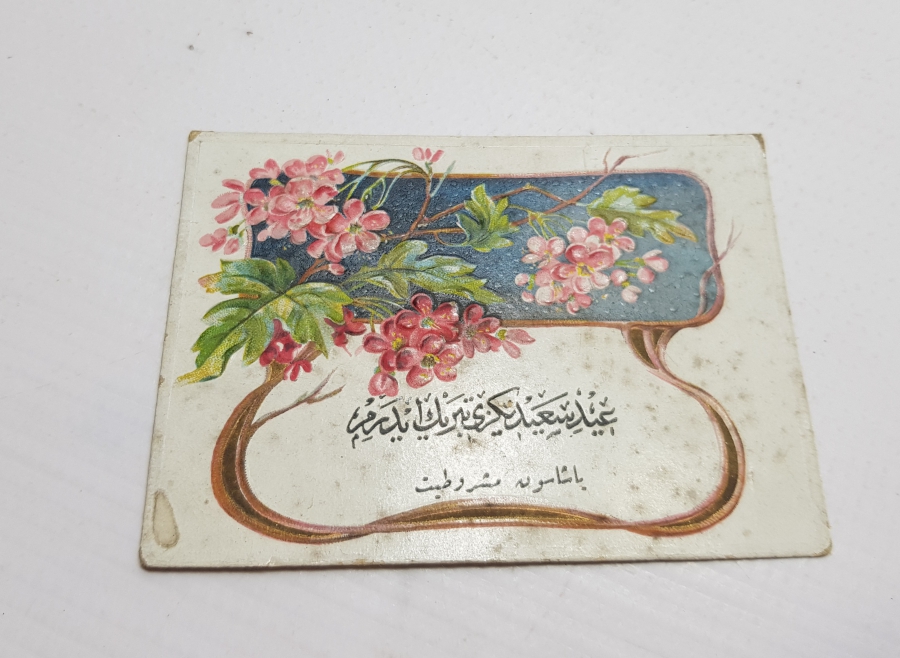 عِيْدِ سَعِيْدِيكزى تَبْرِيك اِيْدَرَمْ
ياشاسون مشروطيت